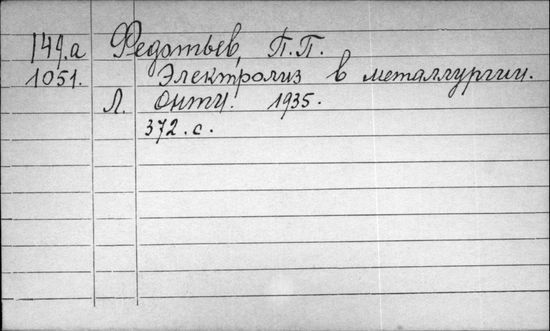 149.а Федотьев, П.П.
1051. Электролиз в металлургии.
Л. Онти. 1935.
372.с.